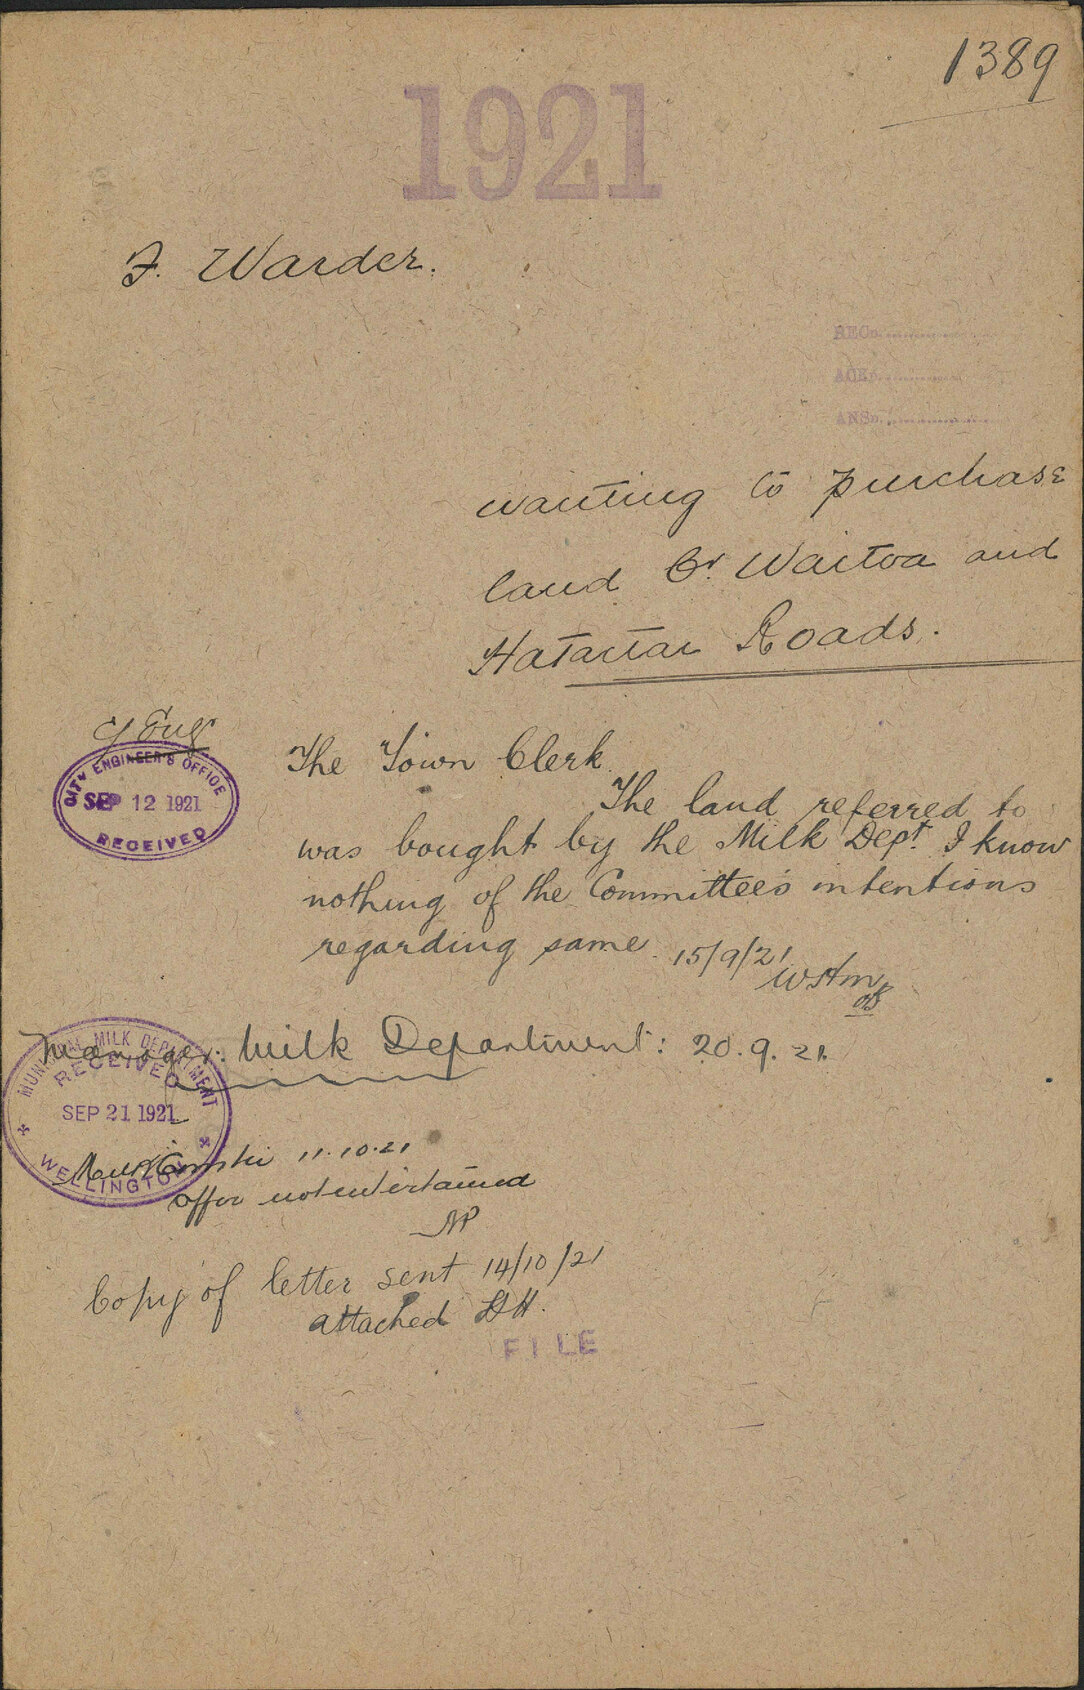 1389
1921
F. Warder.
REC
ACK
ANS
wanting to purchase
land Cr. Waitoa and
Hataitai Roads.
C Eng
CITY ENGINEER'S OFFICE
SEP 12 1921
RECEIVED
The Town Clerk.
The land referred to
was bought by the Milk Dept. I know
nothing of the Committee's intentions
regarding same. 15/9/21
Manager: Milk Department: 20.9.21.
MUNICIPAL MILK DEPARTMENT
RECEIVED
SEP 21 1921
WELLINGTON
11.10.21
offer not entertained
Copy of letter sent 14/10/21
attached
FILE